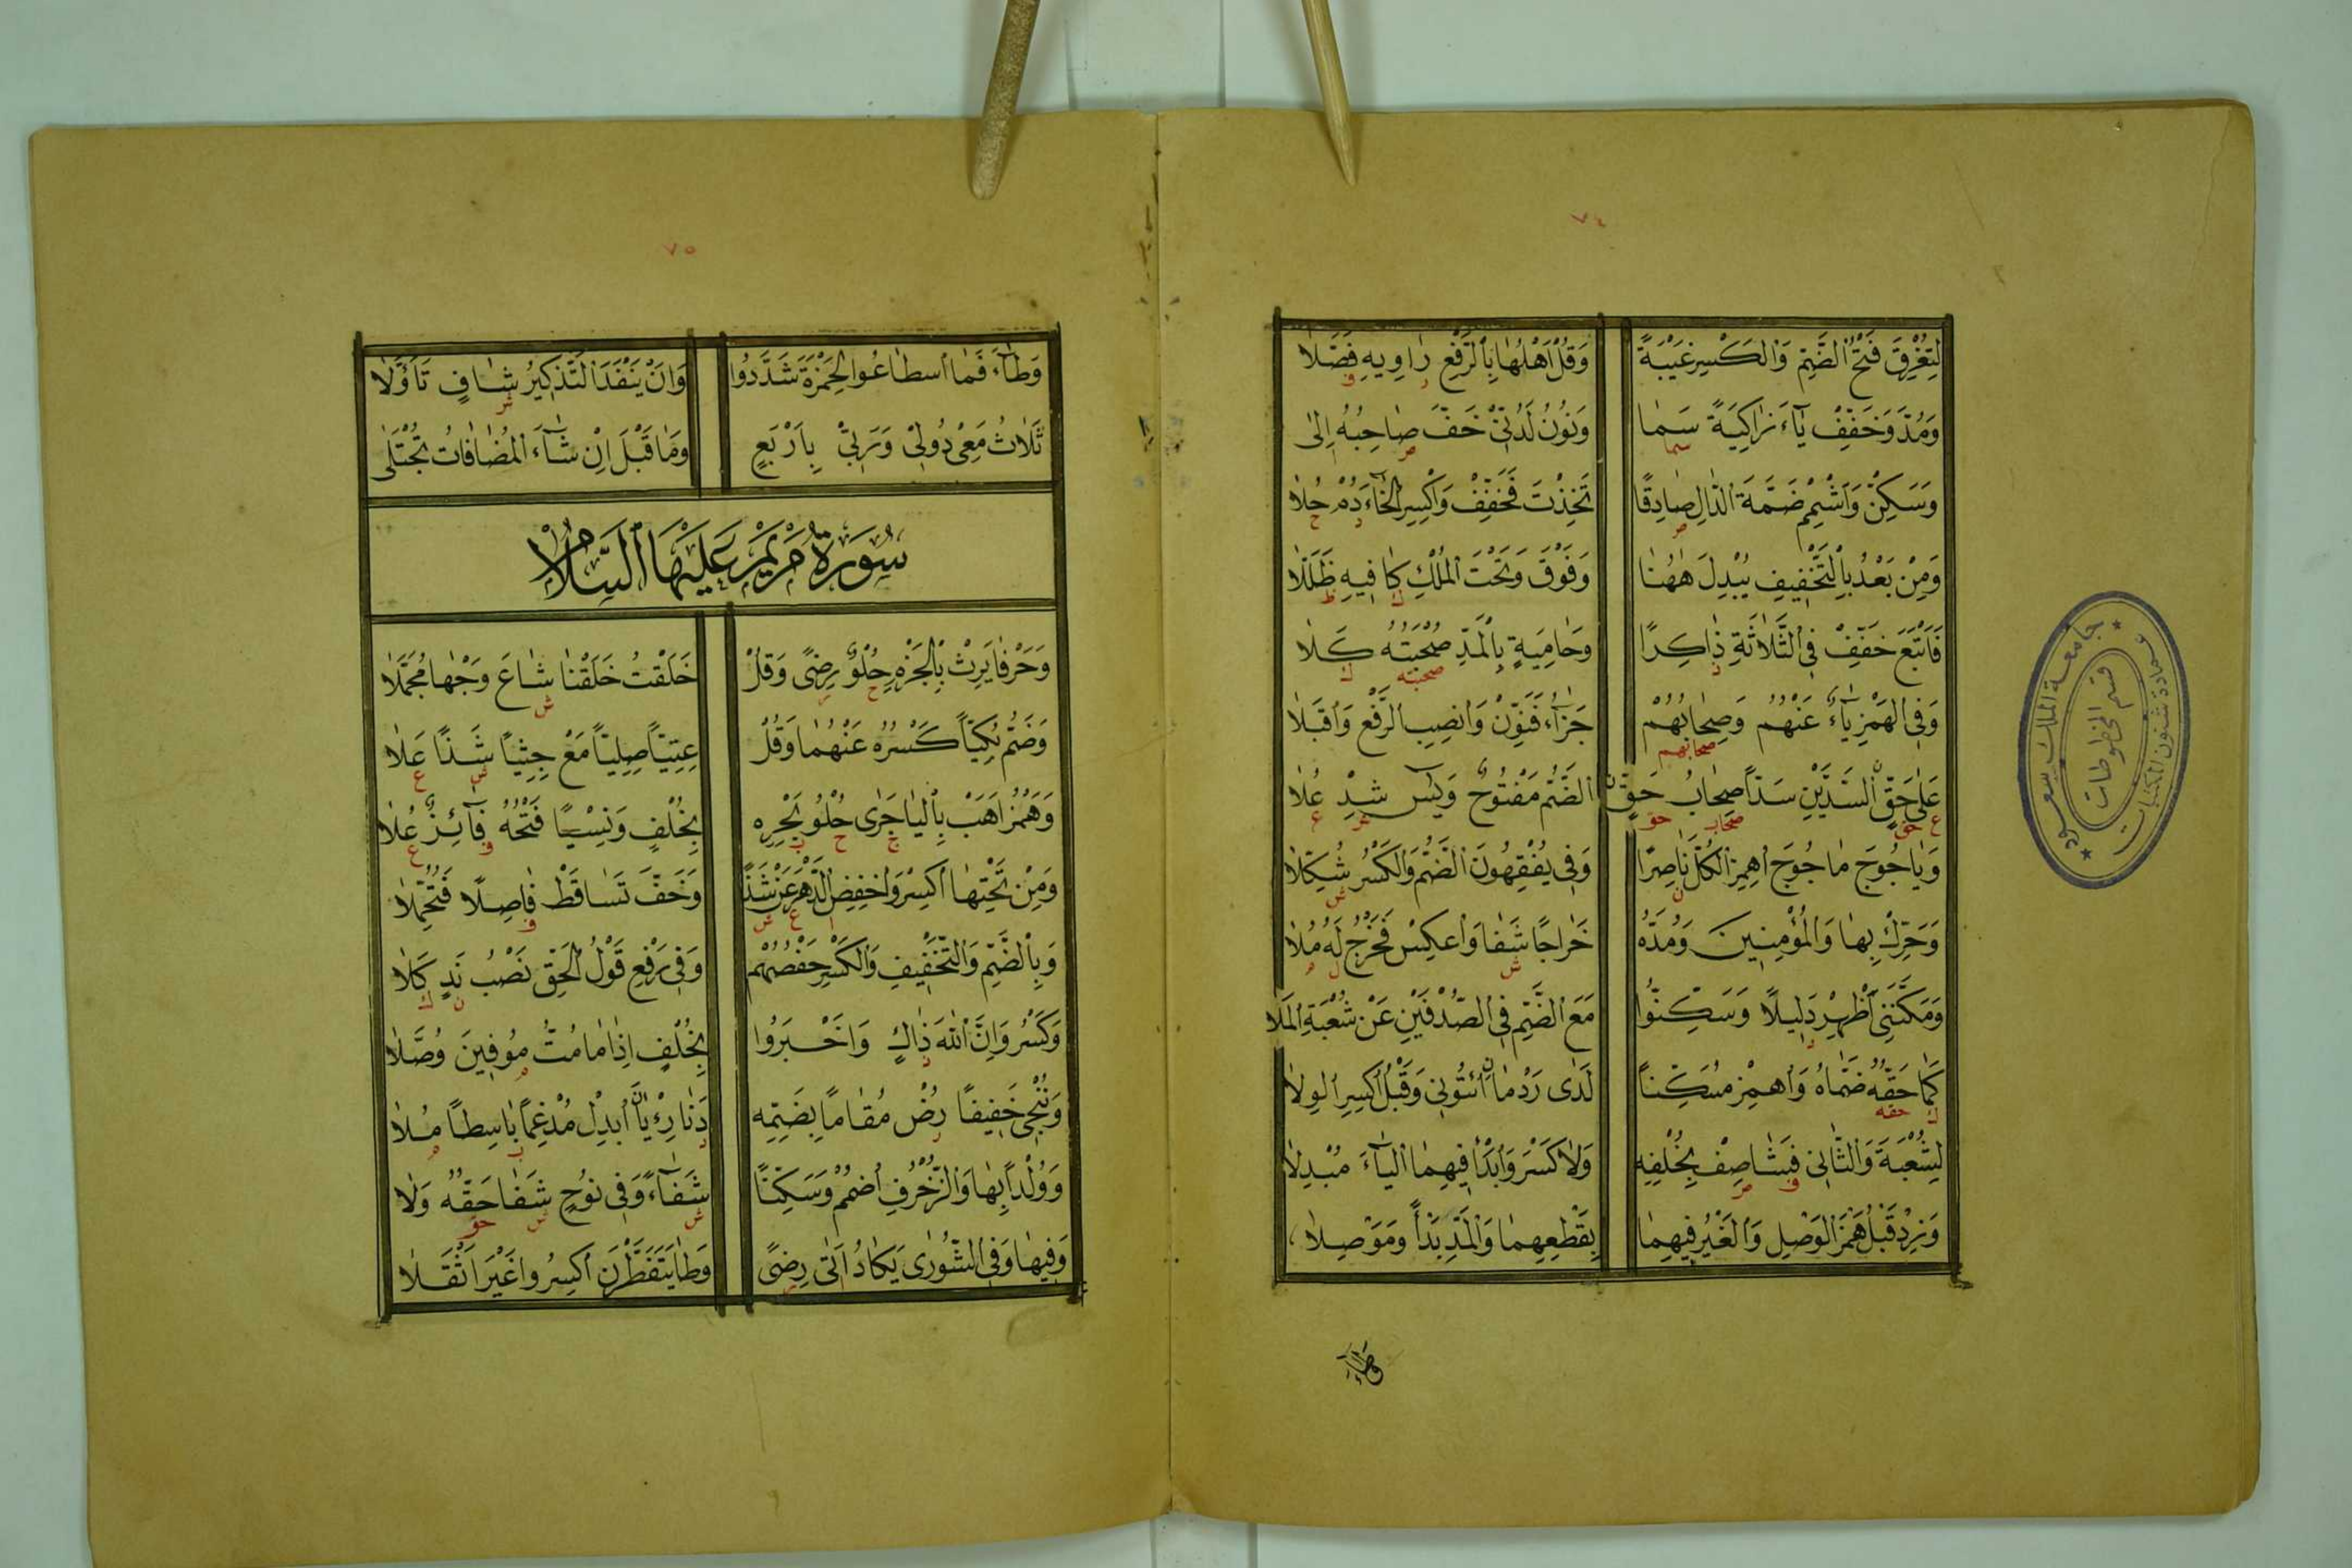 ٧٤
لِتُغْرِقَ فَتْحُ الضَّمِّ وَالكَسْرِ غَيْبَةً وَقُلْ أَهْلُهَا بِالرَّفْعِ رَاوِيهِ فَصَّلَا
وَمُدَّ وَخَفِّفْ يَاءَ زَاكِيَةً سَمَا وَنُونُ لَدُنِّي خَفَّ صَاحِبُهُ إِلَى
وَسَكِّنْ وَأَشْمِمْ ضَمَّةَ الدَّالِ صَادِقًا تَخِذْتَ فَخَفِّفْ وَاكْسِرِ الخَاءَ دُمْ حُلَا
وَمِنْ بَعْدُ بِالتَّخْفِيفِ يُبْدِلَ هٰهُنَا وَفَوْقَ وَتَحْتَ المُلْكِ كَافِيهِ ظَلَّلَا
فَأَتْبَعَ خَفِّفْ فِي الثَّلَاثَةِ ذَاكِرًا وَحَامِيَةٍ بِالمَدِّ صُحْبَتُهُ كَلَا
وَفِي الهَمْزِ يَاءٌ عَنْهُمُ وَصِحَابُهُمْ جَزَاءُ فَنَوِّنْ وَانْصِبِ الرَّفْعَ وَاقْبَلَا
عَلَى حَقٍّ السَّدَّيْنِ سَدًّا صِحَابُ حَقٍّ الضَّمُّ مَفْتُوحٌ وَيس شِدْ عُلَا
وَيَاجُوجَ مَاجُوجَ اهْمِزِ الكُلَّ نَاصِرًا وَفِي يُفْقِهُونَ الضَّمُّ وَالكَسْرُ شُكِّلَا
وَحَرِّكْ بِهَا وَالمُؤْمِنِينَ وَمُدَّهُ خَرَاجًا شَفَا وَاعْكِسْ فَخَرْجُ لَهُ مُلَا
وَمَكَّنَنِي أَظْهِرْ دَلِيلًا وَسَكِّنُوا مَعَ الضَّمِّ فِي الصُّدْفَيْنِ عَنْ شُعْبَةِ المَلَا
كَمَا حَقُّهُ ضَمَّاهُ وَاهْمِزْ مُسَكِّنًا لَدَى رَدْمًا ائْتُونِي وَقَبْلُ اكْسِرِ الوِلَا
لِشُعْبَةَ وَالثَّانِي فَشَا صِفْ بِخُلْفِهِ وَلَا كَسْرَ وَابْدَأْ فِيهِمَا اليَاءَ مُبْدِلَا
وَزِدْ قَبْلُ هَمْزَ الوَصْلِ وَالغَيْرُ فِيهِمَا بِقَطْعِهِمَا وَالمَدِّ بَدْأً وَمَوْصِلَا
وَطَاءَ
جامعة الملك سعود
عمادة شئون المكتبات
قسم المخطوطات
٧٥
وَطَاءَ فَمَا اسْطَاعُوا لِحَمْزَةَ شَدَّدُوا وَأَنْ يَنْفَدَ التَّذْكِيرُ شَافٍ تَأَوَّلَا
ثَلَاثُ مَعِي دُونِي وَرَبِّي بِأَرْبَعٍ وَمَا قَبْلَ إِنْ شَاءَ المُضَافَاتُ تُجْتَلَى
سُورَةُ مَرْيَمَ عَلَيْهَا السَّلَامُ
وَحَرْفَا يَرِثْ بِالجَزْمِ حُلْوُ رِضًى وَقُلْ خَلَقْتُ خَلَقْنَا شَاعَ وَجْهًا مُجَمَّلَا
وَضَمُّ بُكِيًّا كَسْرُهُ عَنْهُمَا وَقُلْ عِتِيًّا صِلِيًّا مَعْ جِثِيًّا شَذًا عَلَا
وَهَمْزُ أَهَبْ بِاليَا جَرَى حُلْوُ بَحْرِهِ بِخُلْفٍ وَنِسْيًا فَتْحُهُ فَائِزٌ عُلَا
وَمِنْ تَحْتِهَا اكْسِرْ وَاخْفِضِ الدَّهْرَ عَنْ شَذًا وَخَفَّ تَسَاقَطْ فَاصِلًا فَتُحُمِّلَا
وَبِالضَّمِّ وَالتَّخْفِيفِ وَالكَسْرِ حَفْصُهُمْ وَفِي رَفْعِ قَوْلُ الحَقِّ نَصْبُ نَدٍ كَلَا
وَكَسْرُ وَإِنَّ اللّٰهَ ذَاكٍ وَأَخْبَرُوا بِخُلْفٍ إِذَا مَا مُتُّ مُوفِينَ وُصَّلَا
وَنُنْجِي خَفِيفًا رُضْ مُقَامًا بِضَمِّهِ دَنَا رِءْيًا ابْدِلْ مُدْغِمًا بَاسِطًا مُلَا
وَوُلْدًا بِهَا وَالزُّخْرُفِ اضْمُمْ وَسَكِّنًا شَفَاءً وَفِي نُوحٍ شَفَا حَقُّهُ وَلَا
وَفِيهَا وَفِي الشُّورَى يَكَادُ أَتَى رِضًى وَطَا يَتَفَطَّرْنَ اكْسِرُوا غَيْرَ أَثْقَلَا